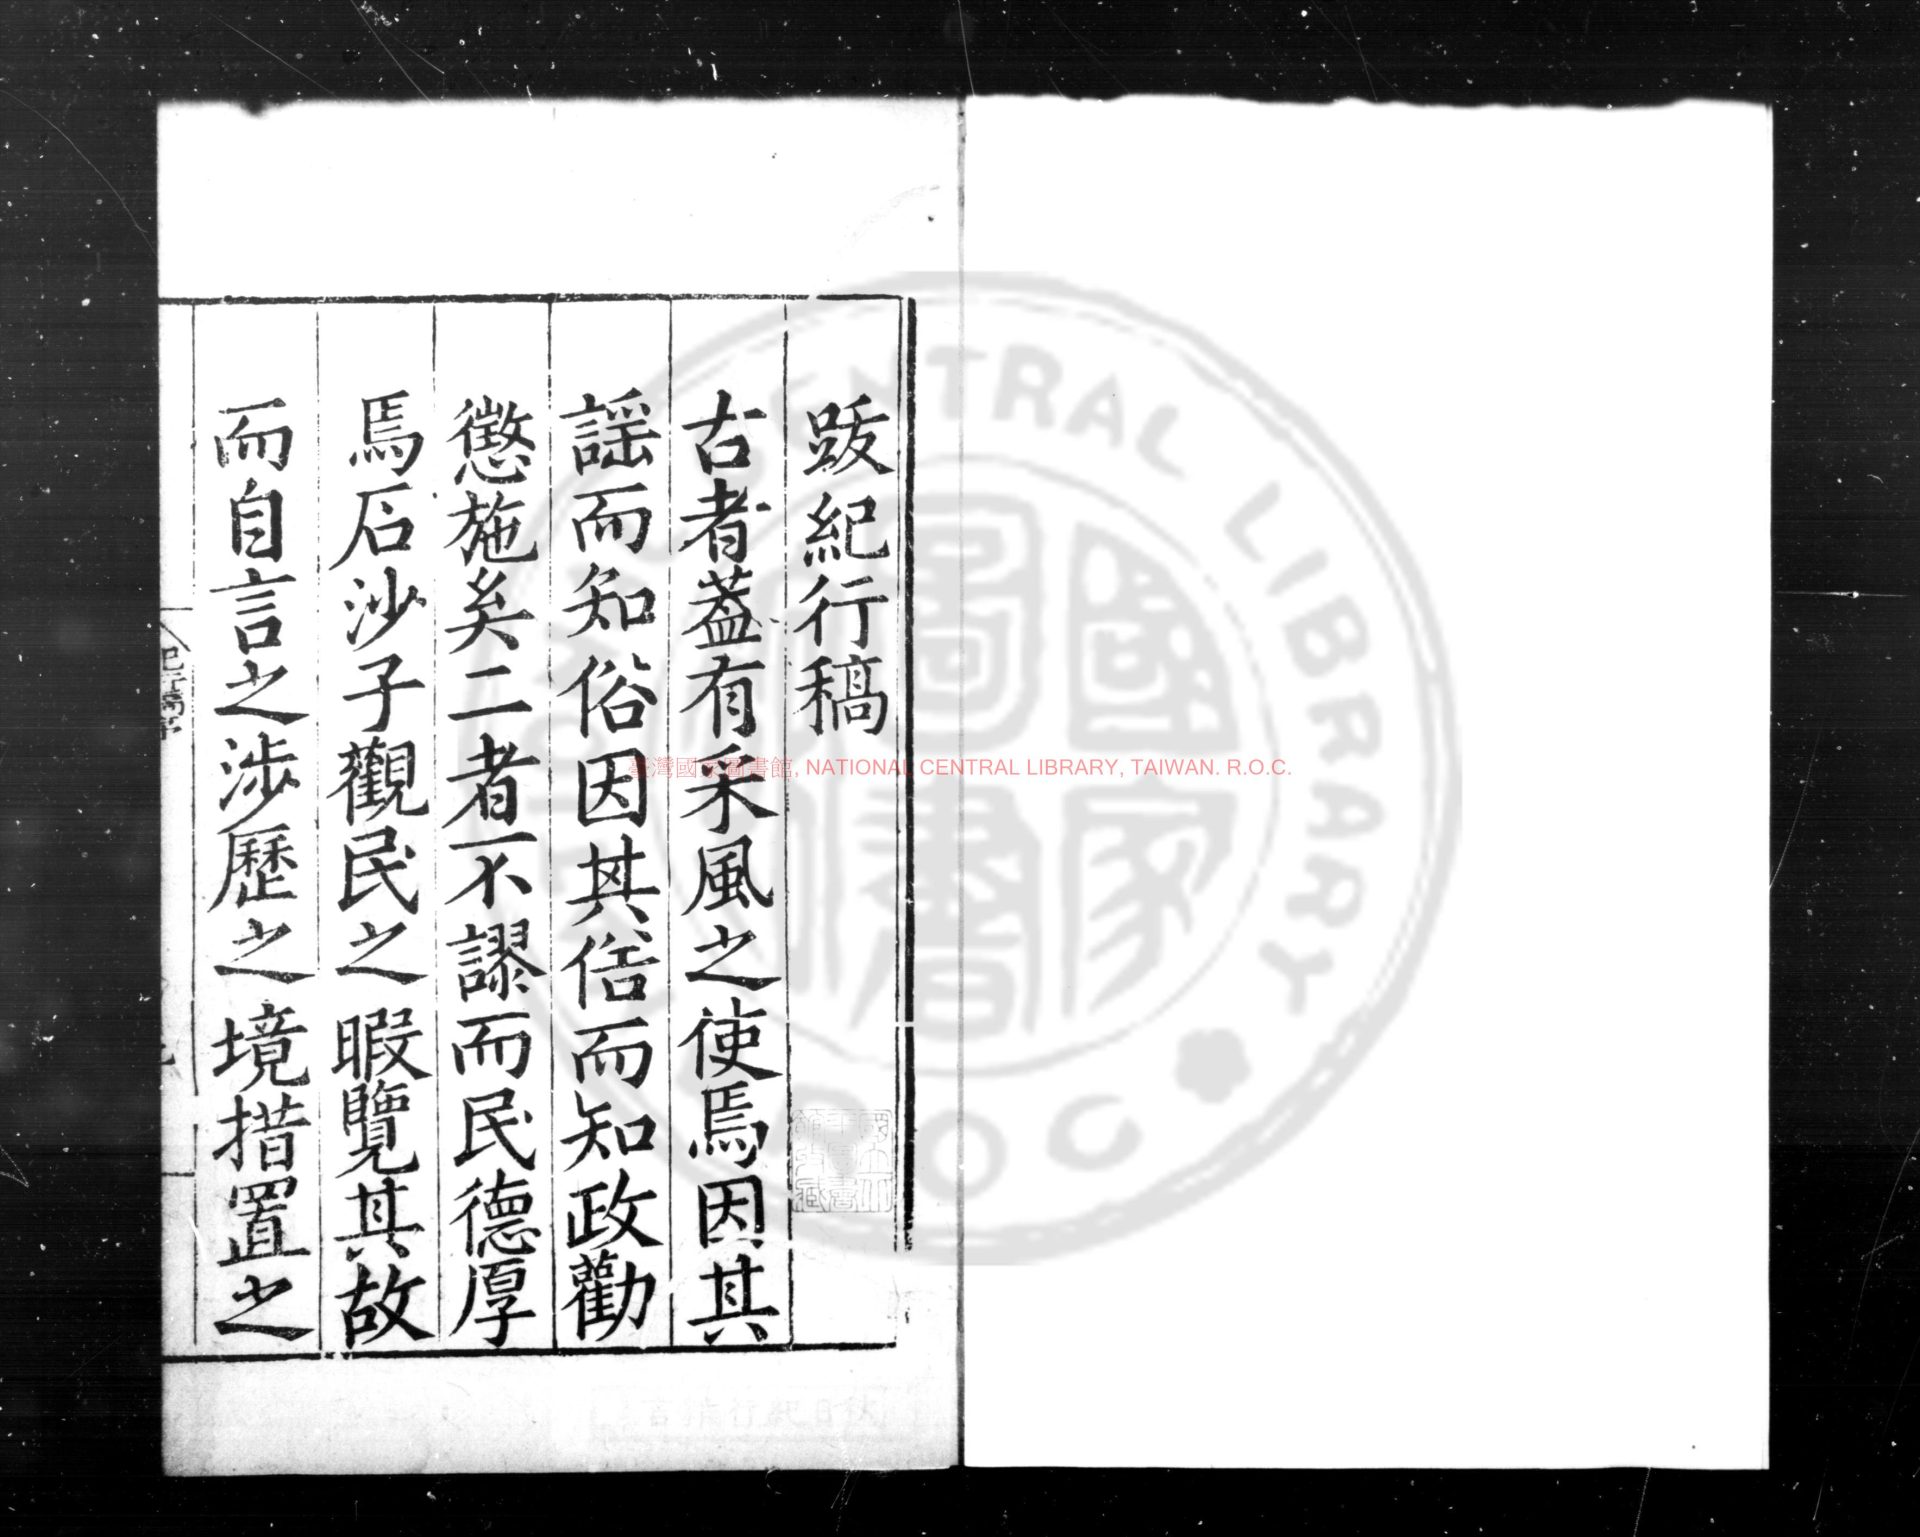 跋紀行稿
古者蓋有采風之使焉因其
謡而知俗因其俗而知政勸
懲施矣二者不謬而民德厚
焉石沙子觀民之暇覽其故
而自言之涉歷之境措置之
臺灣國家圖書館, NATIONAL CENTRAL LIBRARY, TAIWAN. R.O.C.
CENTRAL LIBRARY
國家圖書